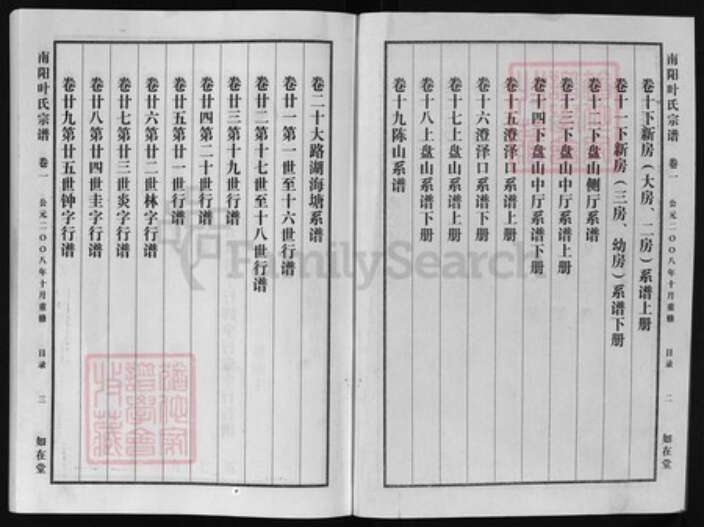 南阳叶氏宗谱 卷一 公元二〇〇八年十月重修 目录 二 如在堂
卷十下新房（大房、二房）系谱上册
卷十一下新房（三房、幼房）系谱下册
卷十二下盘山侧厅系谱
卷十三下盘山中厅系谱上册
卷十四下盘山中厅系谱下册
卷十五澄泽口系谱上册
卷十六澄泽口系谱下册
卷十七上盘山系谱上册
卷十八上盘山系谱下册
卷十九陈山系谱
卷二十大路湖海塘系谱
卷廿一第一世至十六世行谱
卷廿二第十七世至十八世行谱
卷廿三第十九世行谱
卷廿四第二十世行谱
卷廿五第廿一世行谱
卷廿六第廿二世林字行谱
卷廿七第廿三世炎字行谱
卷廿八第廿四世圭字行谱
卷廿九第廿五世钟字行谱
南阳叶氏宗谱 卷一 公元二〇〇八年十月重修 目录 三 如在堂
FamilySearch